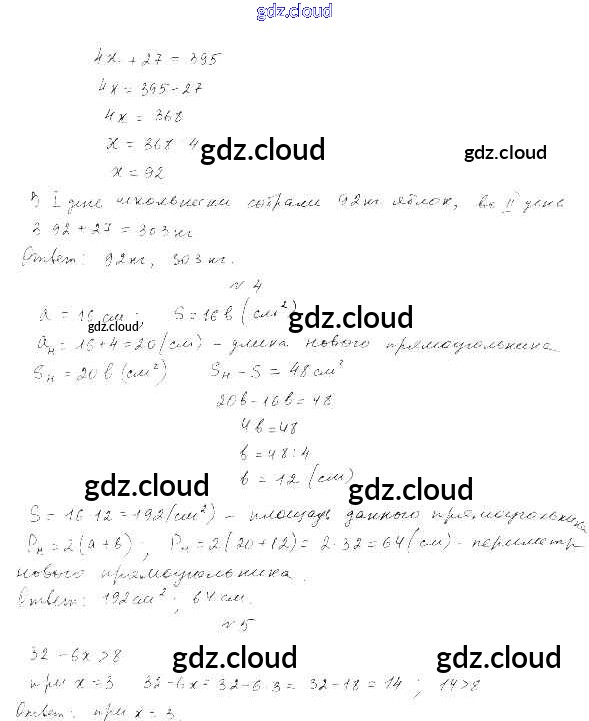 gdz.cloud
4x + 27 = 395
4x = 395 - 27
4x = 368
x = 368 4
gdz.cloud gdz.cloud
x = 92
В I день школьники собрали 92 кг яблок, во II день
3 92 + 27 = 303 кг
Ответ: 92 кг, 303 кг.
№ 4
a = 16 см; S = 16b (см²)
gdz.cloud gdz.cloud
aн = 16 + 4 = 20 (см) - длина нового прямоугольника
Sн = 20b (см²) Sн - S = 48 см²
20b - 16b = 48
4b = 48
b = 48 : 4
b = 12 (см)
gdz.cloud gdz.cloud
S = 16 12 = 192 (см²) - площадь данного прямоугольника
Pн = 2(a + b); Pн = 2(20 + 12) = 2 · 32 = 64 (см) - периметр
нового прямоугольника.
Ответ: 192 см²; 64 см.
№ 5
32 - 6x > 8
gdz.cloud gdz.cloud
при x = 3 32 - 6x = 32 - 6·3 = 32 - 18 = 14; 14 > 8
Ответ: при x = 3.